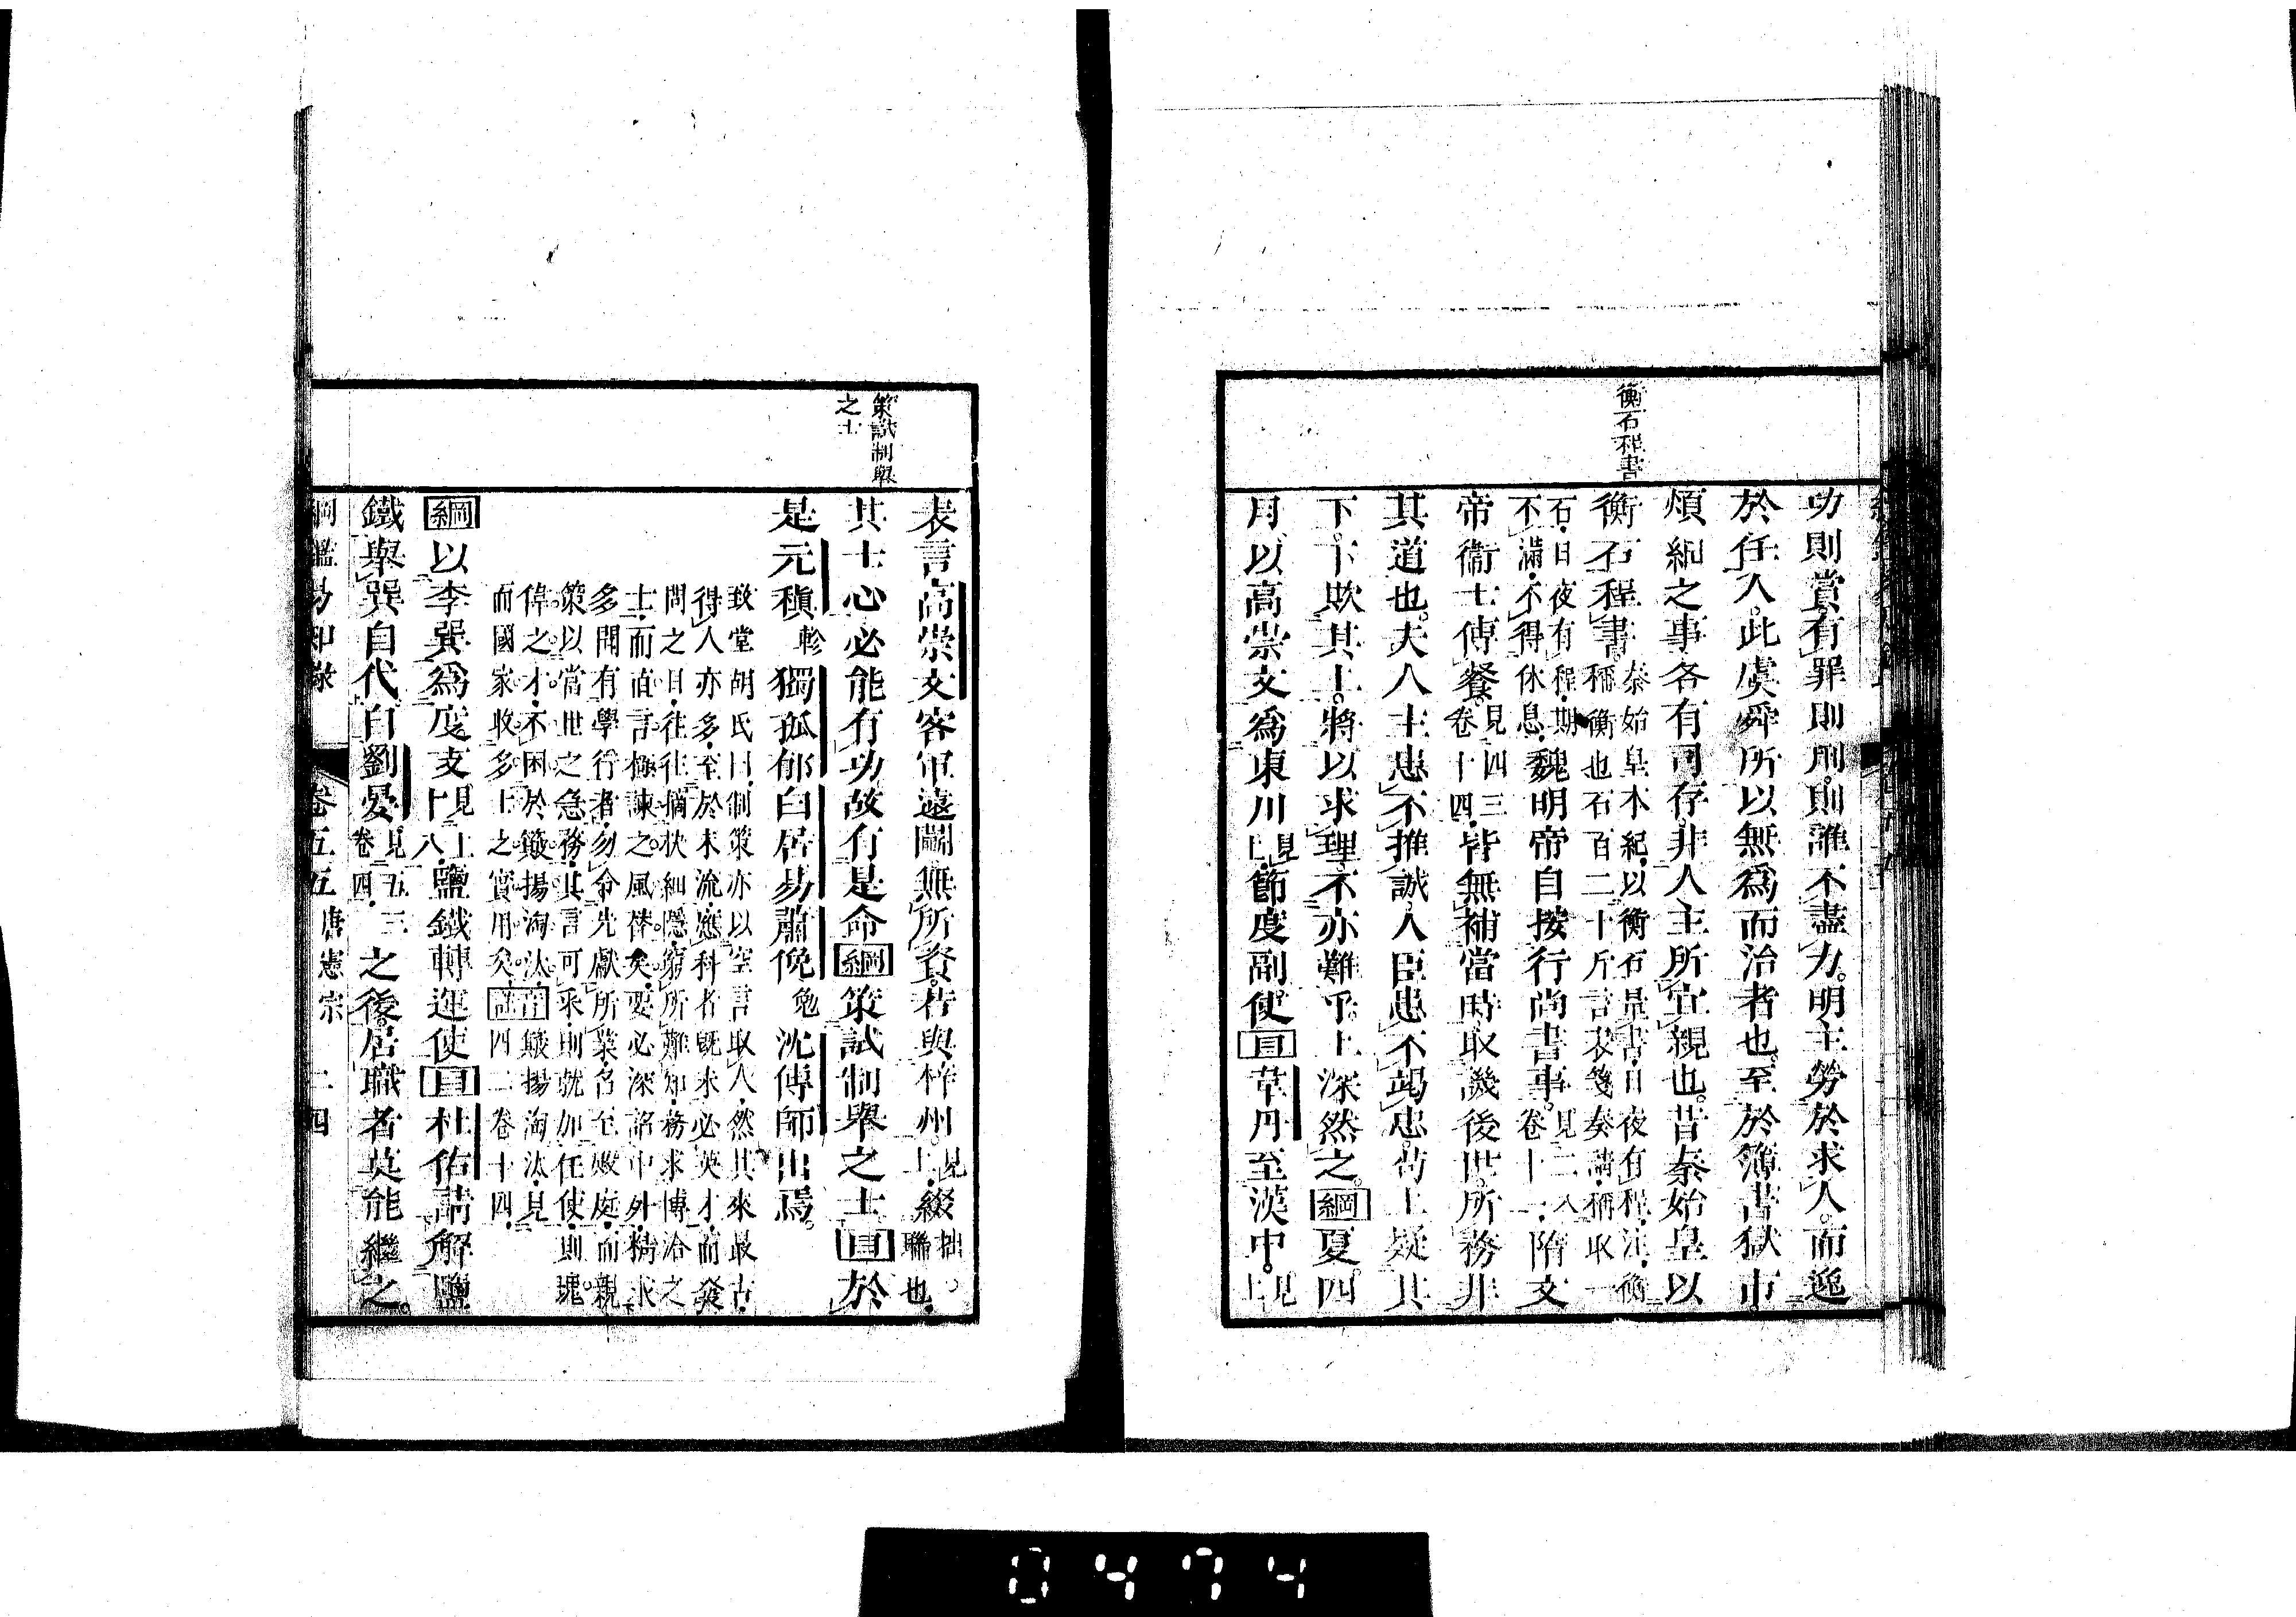 衡石程書
功則賞。有罪則刑。則誰不盡力。明主勞於求人。而逸
於任人。此虞舜所以無爲而治者也。至於簿書獄市。
煩細之事。各有司存。非人主所宜親也。昔秦始皇以
衡石程書。秦始皇本紀。以衡石量書。日夜有程。注。衡
稱衡也石百二十斤言表箋奏請。稱取一
石。日夜有程。期
不滿。不得休息。魏明帝自按行尚書事。見二八
卷十一。隋文
帝衞士傳餐。見四三
卷十四。皆無補當時。取譏後世。所務非
其道也。夫人主患不推誠。人臣患不竭忠。苟上疑其
下。下欺其上。將以求理。不亦難乎。上深然之。綱夏。四
月。以高崇文爲東川見上。節度副使。目韋丹至漢中。見上
策試制舉
之士
表言高崇文客軍遠鬭。無所資。若與梓州。見上。綴拙。
聯也。
其士心。必能有功。故有是命。綱策試制舉之士。目於
是元稹軫獨孤郁白居易蕭俛免沈傳師出焉。
致堂胡氏曰。制策亦以空言取人。然其來最古。
得人亦多。至於末流。應科者旣未必英才。而發
問之目。往往摘抉細隱。窮所難知。務求博洽之
士。而直言極諫之風替矣。要必深詔中外。精求
多聞有學行者。勿令先獻所業。召至殿庭。而親
策以當世之急務。其言可采。則就加任使。則瓌
偉之才。不困於簸揚淘汰。註簸揚淘汰。見
而國家收多士之實用矣。四二卷十四。
綱以李巽爲度支見上
十八。鹽鐵轉運使。目杜佑請解鹽
鐵。舉巽自代。自劉晏見五三
卷四。之後。居職者莫能繼之。
綱鑑易知錄 卷五五 唐憲宗 二四
0474